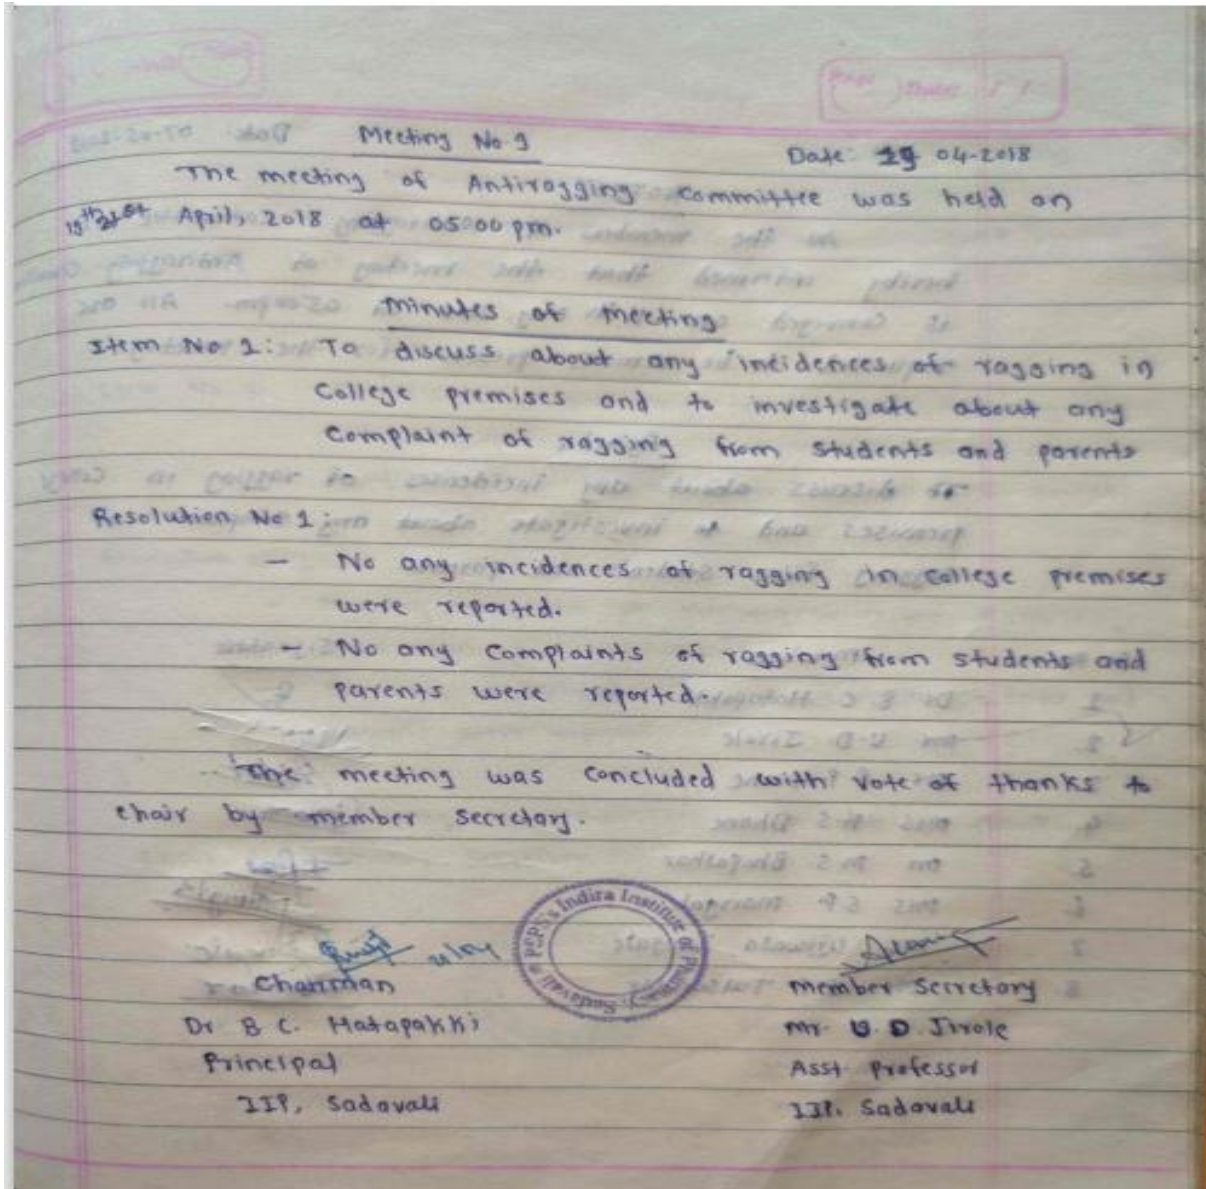 Meeting No 9
Date: 19 04-2018
The meeting of Antiragging Committee was held on
19th April, 2018 at 05:00 pm.
Minutes of Meeting
Item No 1: To discuss about any incidences of ragging in
College premises and to investigate about any
Complaint of ragging from students and parents
Resolution No 1:
- No any incidences of ragging in college premises
were reported.
- No any Complaints of ragging from students and
parents were reported.
The meeting was concluded with vote of thanks to
chair by member secretary.
PSPS's Indira Institute of Pharmacy, Sadavali
Chairman
Member Secretary
Dr B C. Hatapakki
Mr. U. D. Jirole
Principal
Asst. Professor
IIP, Sadavali
IIP. Sadavali